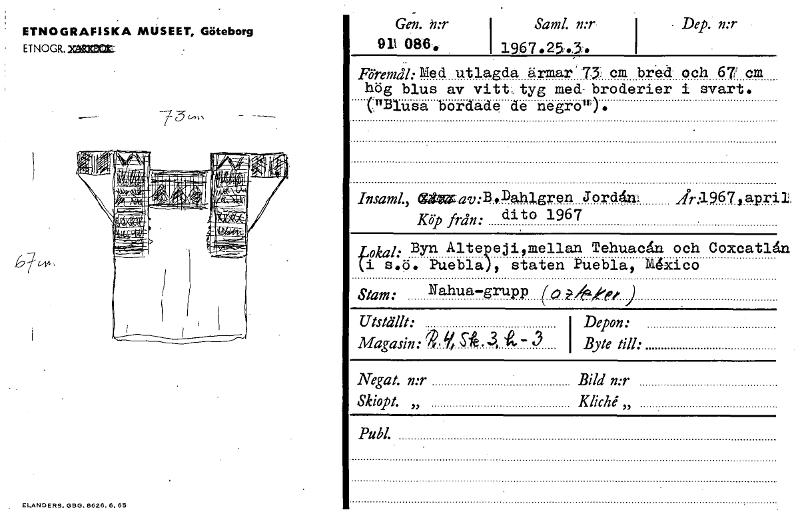 ETNOGRAFISKA MUSEET, Göteborg
ETNOGR.
73 cm
67 cm
ELANDERS, GBG. 8626. 6. 65
Gen. n:r Saml. n:r Dep. n:r
91 086. 1967.25.3.
Föremål: Med utlagda ärmar 73 cm bred och 67 cm
hög blus av vitt tyg med broderier i svart.
("Blusa bordade de negro").
Insaml., av: B. Dahlgren Jordán År: 1967, april
Köp från: dito 1967
Lokal: Byn Altepeji, mellan Tehuacán och Coxcatlán
(i s.ö. Puebla), staten Puebla, México
Stam: Nahua-grupp (azteker)
Utställt: Depon:
Magasin: R.4, Sk. 3, h-3 Byte till:
Negat. n:r Bild n:r
Skiopt. „ Kliché „
Publ.